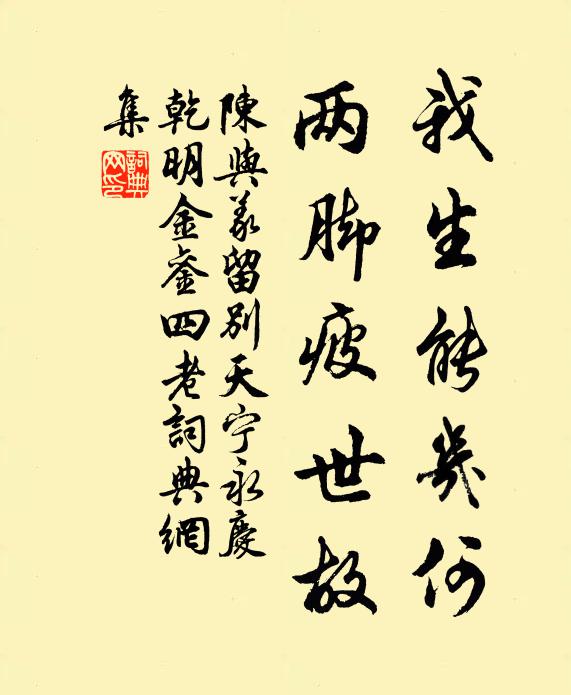 我生能幾何
两脚疲世故
陳與義留别天宁永慶
乾明金銮四老詞典網
集
詞典网印